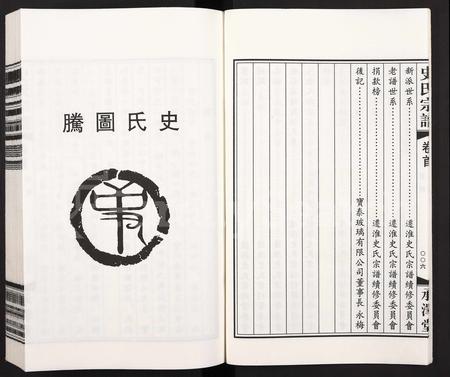 史氏宗譜
卷首
〇〇六
承澤堂
新派世系………………遷淮史氏宗譜續修委員會
老譜世系………………遷淮史氏宗譜續修委員會
捐款榜………………遷淮史氏宗譜續修委員會
後記………………寶泰玻璃有限公司董事長 永梅
史氏圖騰